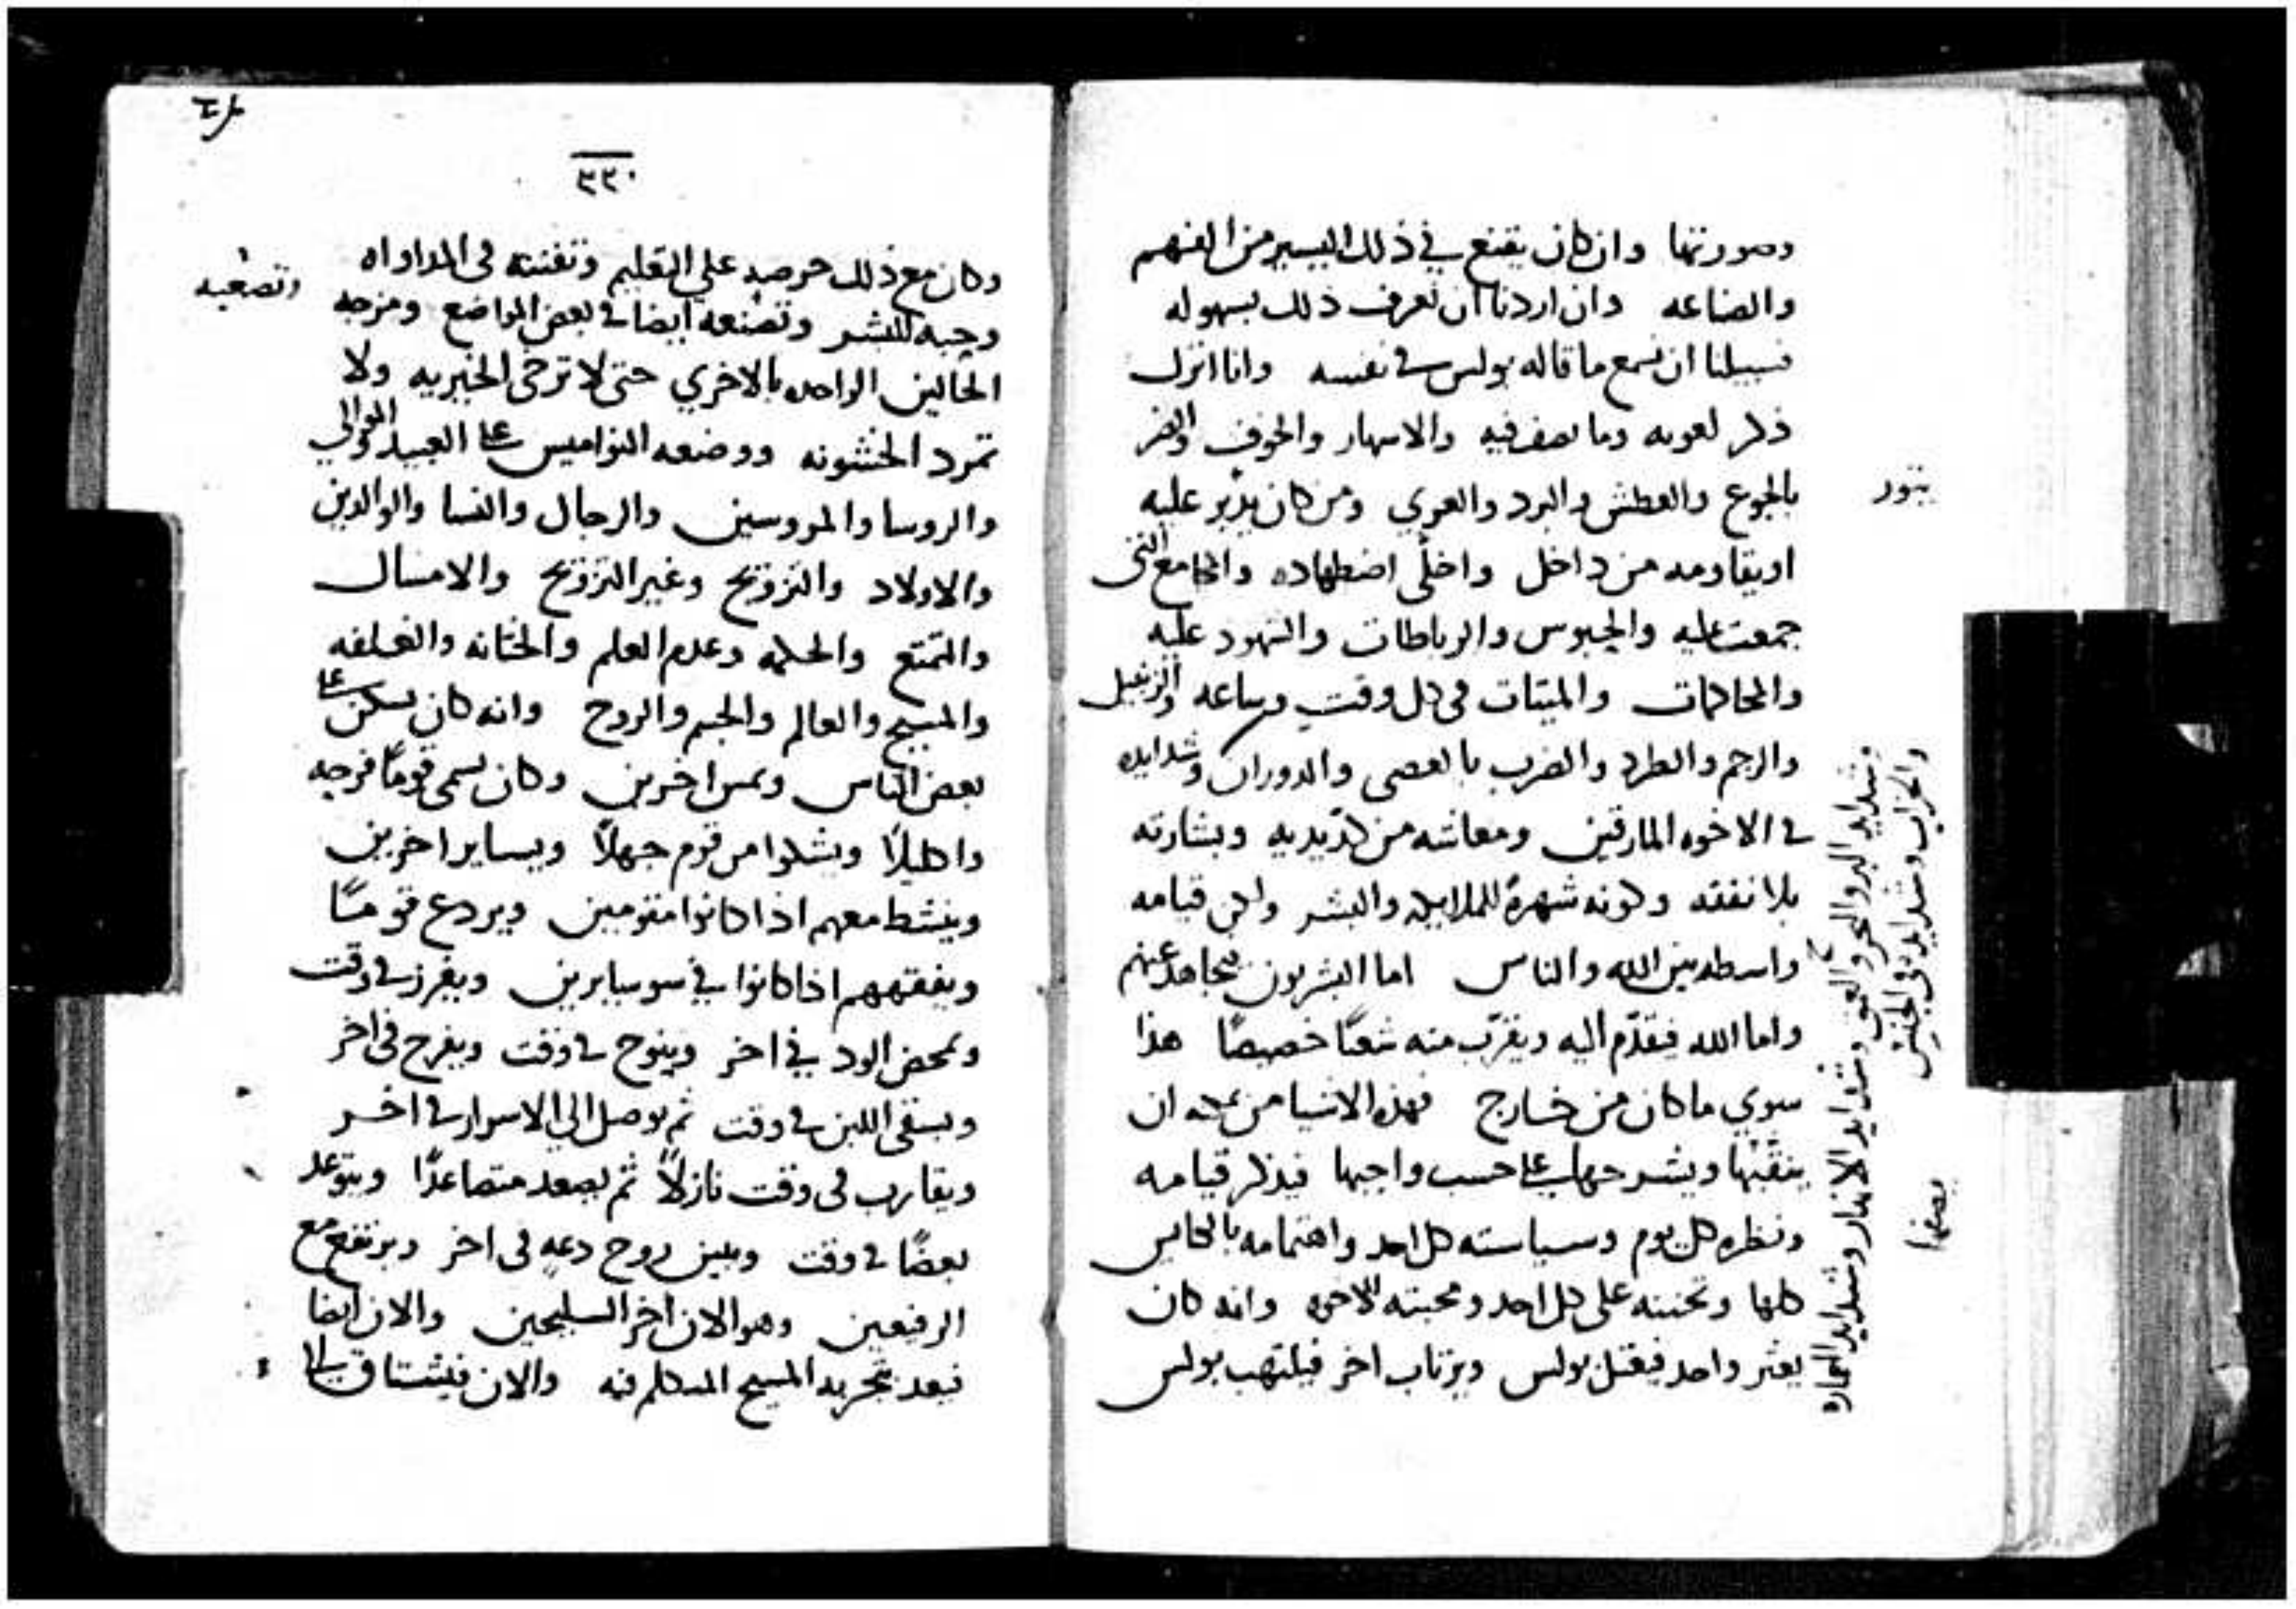 وصورتها وان كان يقنع في ذلك اليسير من الفهم
والصناعه وان اردنا ان نعرف ذلك بسهوله
فسبيلنا ان نسمع ما قاله بولس في نفسه وانا اترك
ذكر لعوبه وما يصف فيه والاسهار والخوف والضر
بالجوع والعطش والبرد والعري ومن كان يدبر عليه
يثور
او يقاومه من داخل واخلّي اضطهاده والمجامع التي
جمعت عليه والحبوس والرباطات والشهود عليه
والمحاكمات والميتات في كل وقت وساعه والزنبيل
والرجم والطرد والضرب بالعصي والدوران وشدايده
في الاخوه المارقين ومعاشه من كدّ يديه وبشارته
بلا نفقته وكونه شهرةً للملايكه والبشر ولكن قيامه
واسطه بين الله والناس اما البشريون فيجاهد عنهم
واما الله فيقدّم اليه ويقرّب منه شعبًا خصيصًا هذا
سوي ما كان من خارج فهذه الاشيا من يمكنه ان
ينقّبها ويشرحها على حسب واجبها فيذكر قيامه
ونظره كل يوم وسياسته كل احد واهتمامه بالكنايس
كلها وتحننه على كل احد ومحبته للاخوه وانه كان
يعثر واحد فيعتل بولس ويرتاب اخر فيلتهب بولس
وشدايد البر والبحر والعمق وشدايد الانهار وشدايد
يصفها
٣٣٠
وكان مع ذلك حرصه على التعليم وتفننه في المداواه
وتصعبه
وحبه للبشر وتصنعه ايضا في بعض المواضع ومزجه
الحالين الواحده بالاخري حتى لا ترخى الخيريه ولا
تمرد الخشونه ووضعه النواميس على العبيد الموالي
والروسا والمروسين والرجال والنسا والوالدين
والاولاد والتزويج وغير التزويج والامساك
والتمتع والحكمه وعدم العلم والختانه والغلفه
والمسيح والعالم والجسم والروح وانه كان يشكر على
بعض الناس ويمس اخرين وكان يسمي قومًا فرحه
واكليلاً ويشكوا من قوم جهلاً ويساير اخرين
وينشط معهم اذا كانوا مقومين ويردع قومًا
ويفقههم اذا كانوا في سو سايرين ويفرز في وقت
ويمحض الود في اخر وينوح في وقت ويفرح في اخر
ويسقي اللبن في وقت ثم يوصل الي الاسرار في اخر
ويقارب في وقت نازلاً ثم يصعد متصاعدًا ويتوعد
بعصًا في وقت ويلين بروح دعه في اخر ويرتفع مع
الرفيعين وهو الان اخر السليحين والان ايضا
فيعد بتجربه المسيح المتكلم فيه والان فيشتاق الي